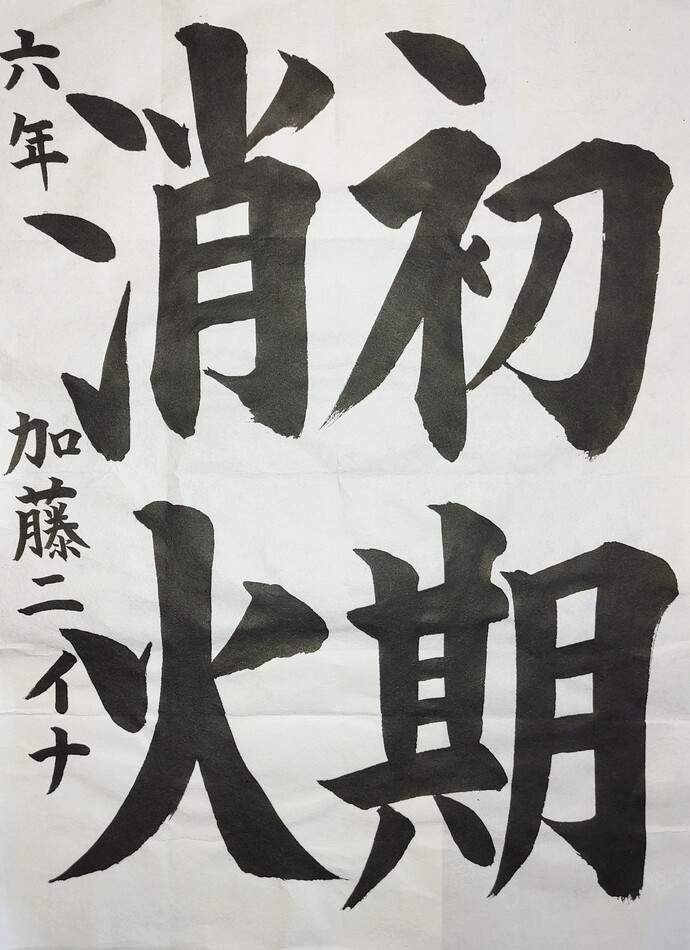 初期
消火
六年 加藤ニイナ